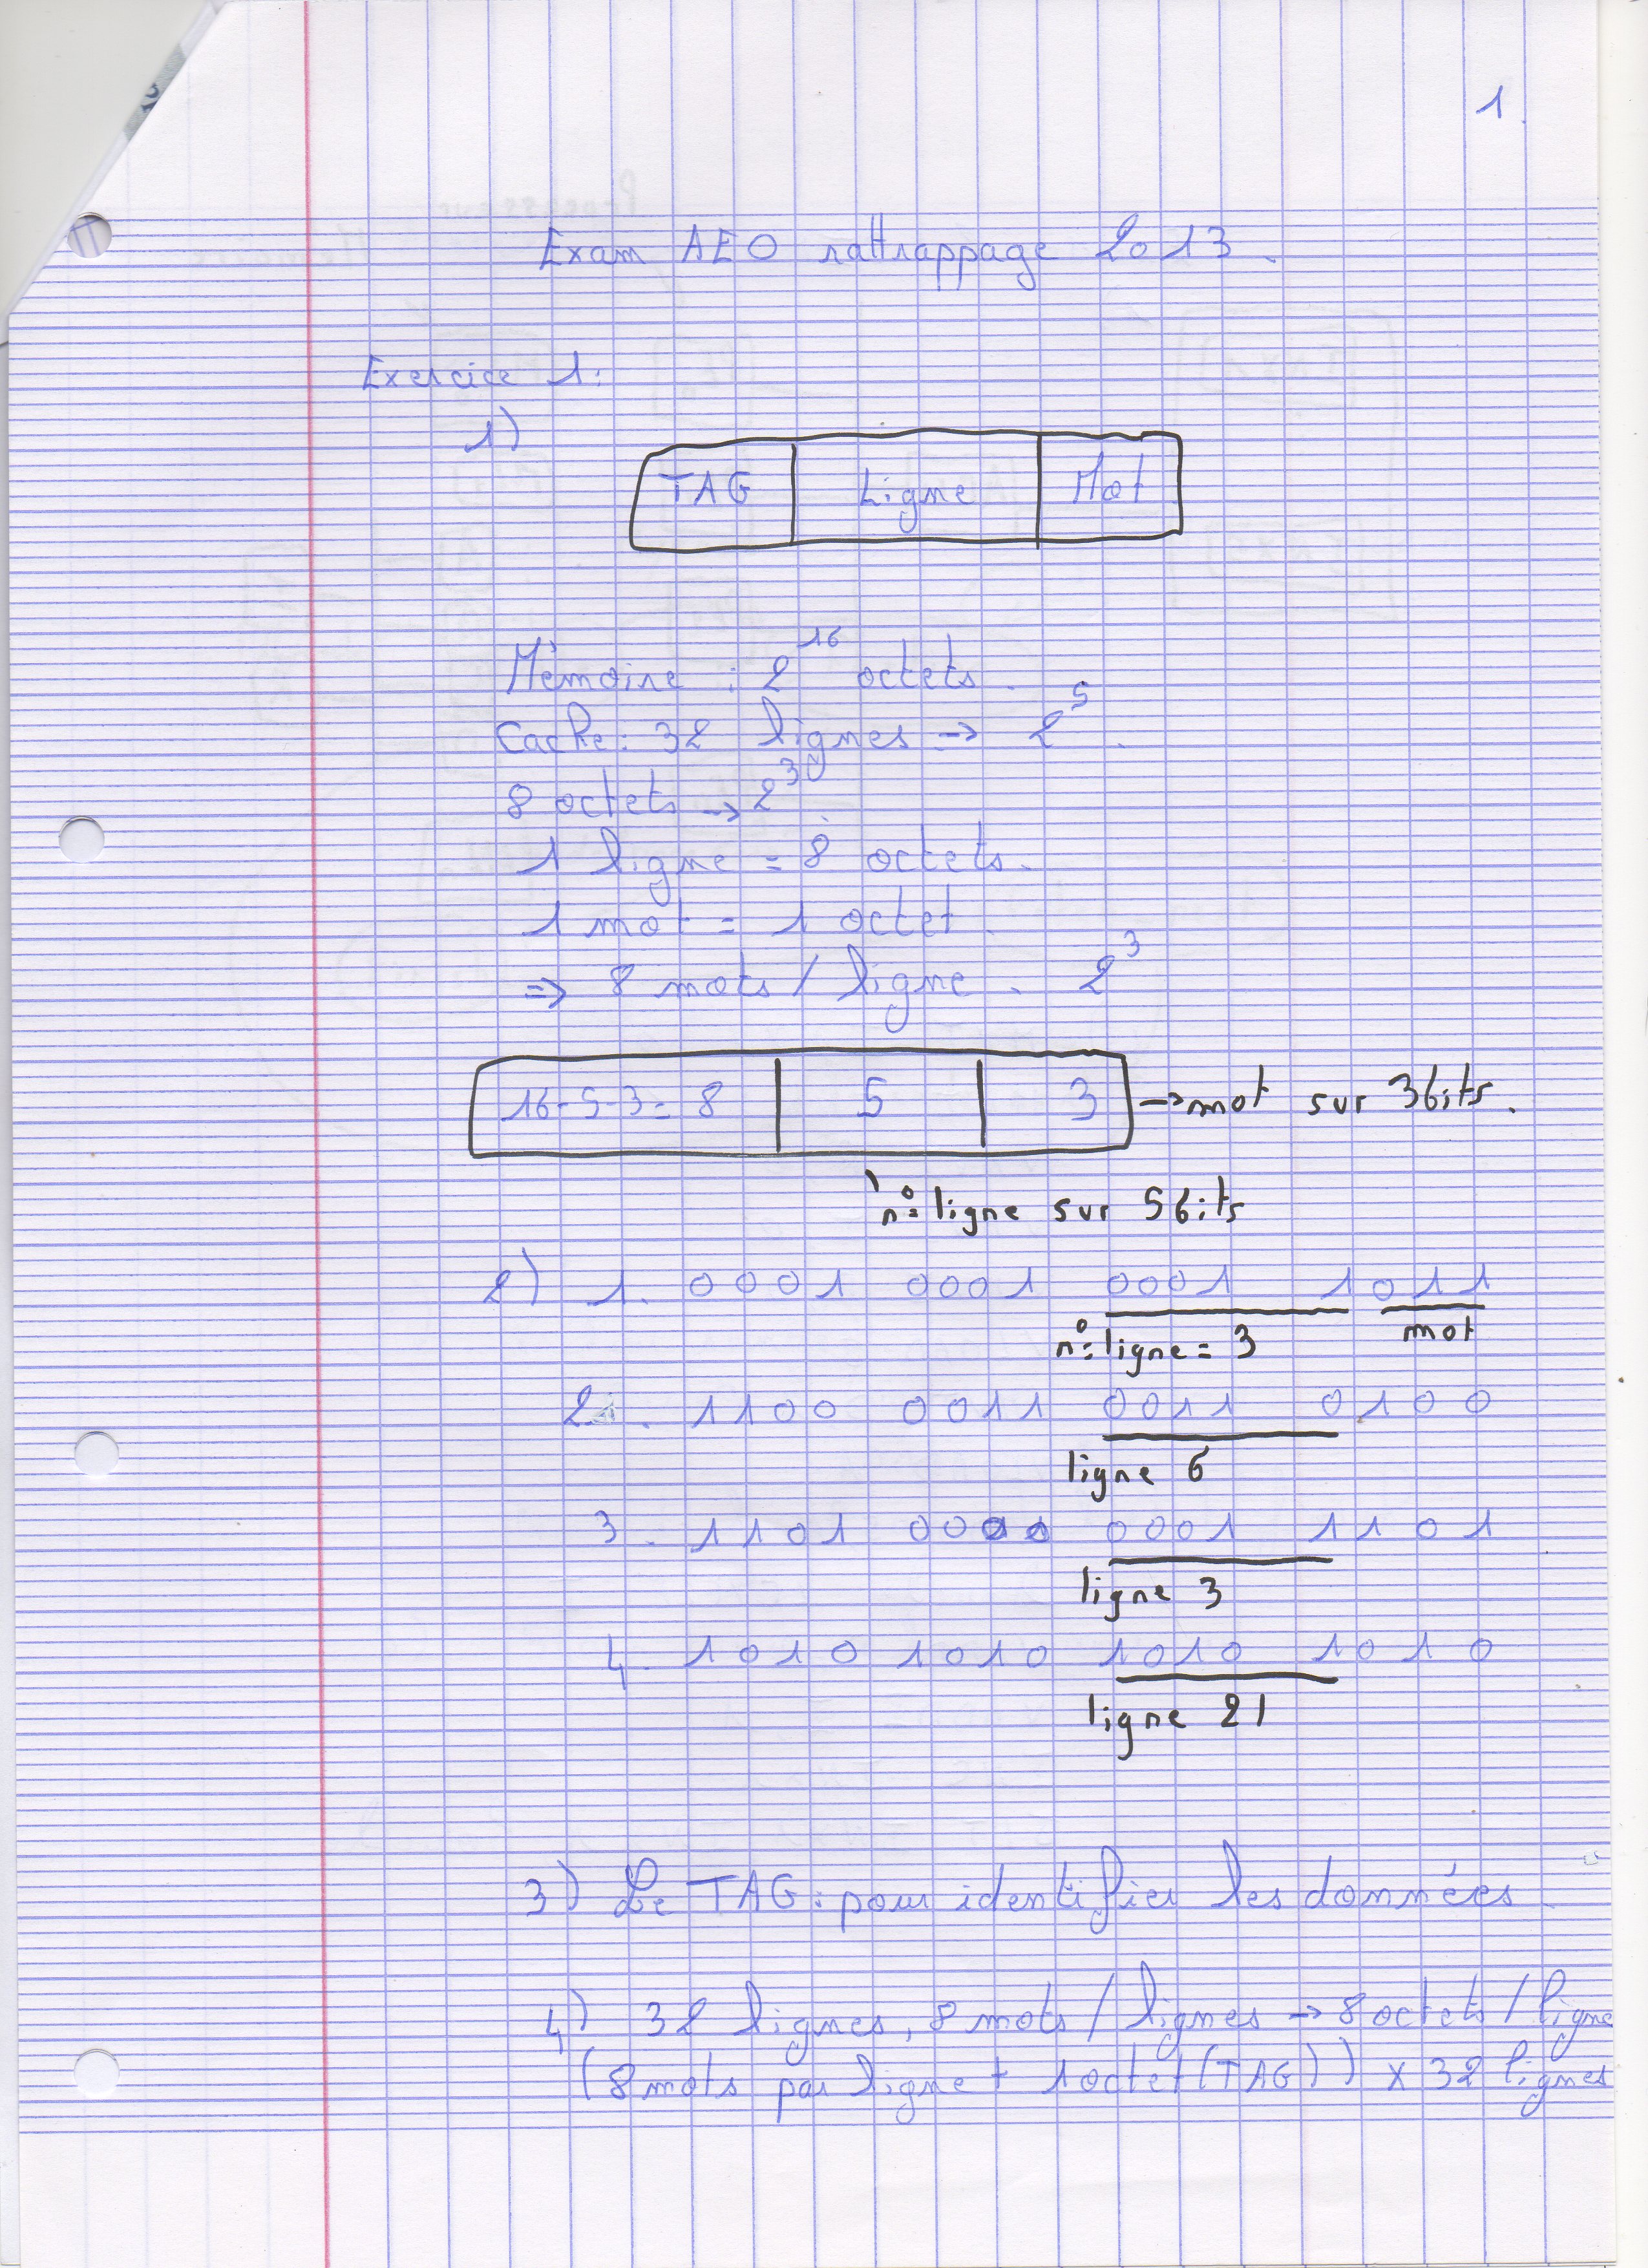 1.
Exam AEO rattrappage 2013.
Exercice 1:
1)
TAG Ligne Mot
Mémoire : 2^16 octets.
Cache: 32 lignes → 2^5.
8 octets → 2^3
1 ligne = 8 octets.
1 mot = 1 octet.
=> 8 mots / ligne. 2^3
16-5-3= 8 5 3 → mot sur 3bits.
n° ligne sur 5bits
2) 1. 0001 0001 0001 1011
n° ligne = 3 mot
2. 1100 0011 0011 0100
ligne 6
3. 1101 0000 0001 1101
ligne 3
4. 1010 1010 1010 1010
ligne 21
3) Le TAG: pour identifier les données.
4) 32 lignes, 8 mots / lignes → 8 octets / ligne
(8 mots par ligne + 1 octet (TAG)) x 32 lignes